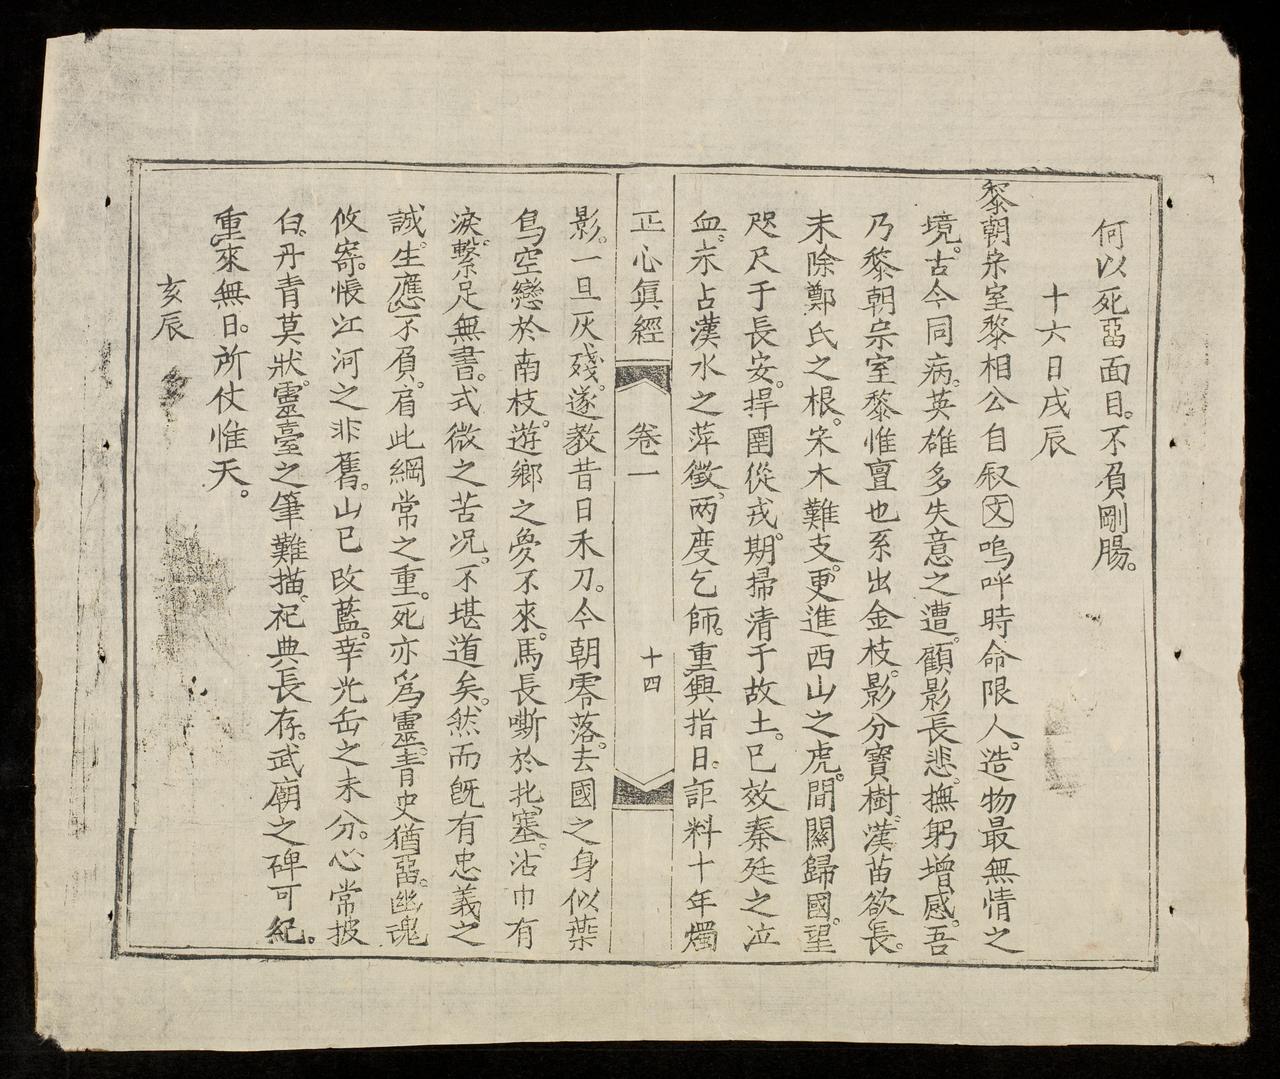 何以死畱面目。不負剛腸。
十六日戌辰
黎朝宗室黎相公自叙文嗚呼時命限人。造物最無情之
境。古今同病。英雄多失意之遭。顧影長悲。撫躬增感。吾
乃黎朝宗室黎惟亶也系出金枝。影分寶樹。漢苗欲長。
未除鄭氏之根。宋木難支。更進西山之虎。間關歸國。望
咫尺于長安。捍圉從戎。期掃清于故土。已效秦廷之泣
血。未占漢水之萍徵。两度乞師。重興指日。詎料十年燭
正心眞經 卷一 十四
影。一旦灰殘。遂教昔日禾刀。今朝零落。去國之身似葉
鳥空戀於南枝。遊鄉之夢不來。馬長嘶於北塞。沾巾有
淚。繫足無書。式微之苦况。不堪道矣。然而旣有忠義之
誠。生應不負。肩此綱常之重。死亦爲靈。青史猶畱。幽魂
攸寄。悵江河之非舊。山已改藍。幸光岳之未分。心常披
白。丹青莫狀。靈臺之筆難描。祀典長存。武廟之碑可紀。
重來無日。所仗惟天。
亥辰